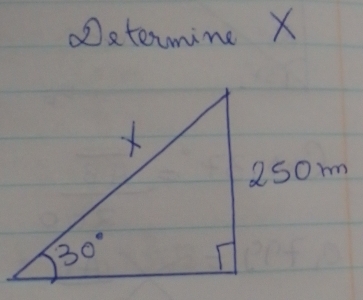 Determine X
X
250m
30°